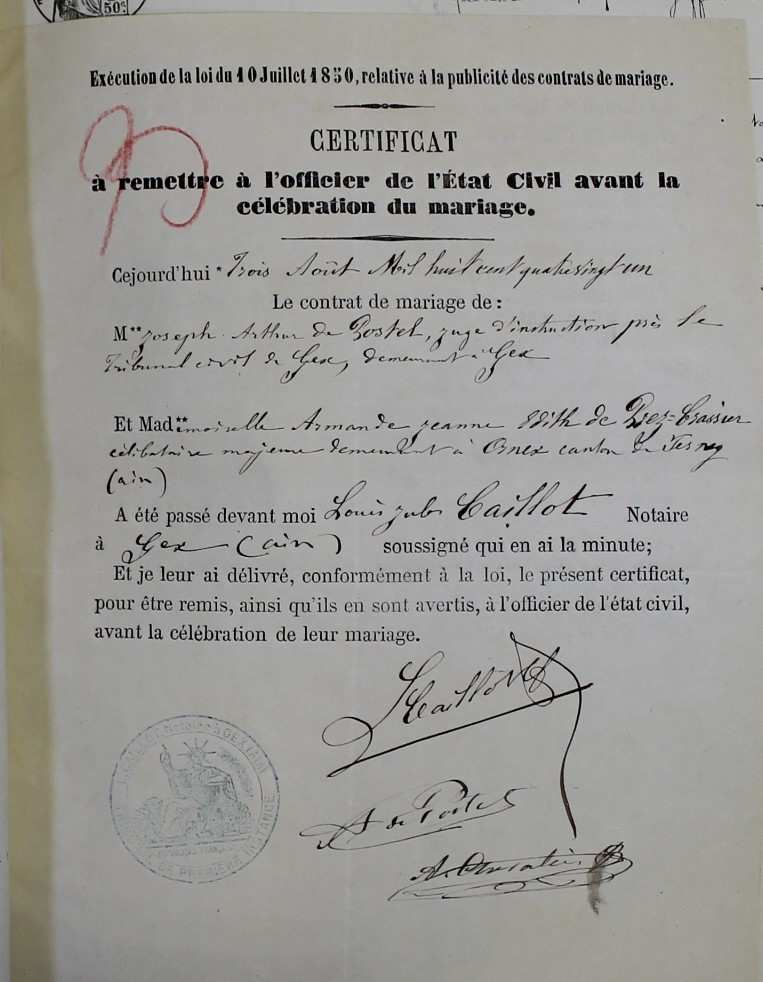 50c
Exécution de la loi du 10 Juillet 1850, relative à la publicité des contrats de mariage.
CERTIFICAT
à remettre à l'officier de l'État Civil avant la
célébration du mariage.
Cejourd'hui * Trois Août Mil huit cent quatrevingt un
Le contrat de mariage de :
M** Joseph Arthur de Postel, juge d'instruction près le
Tribunal civil de Gex, demeurant à Gex
Et Mad**emoiselle Armande Jeanne Edith de Prez-Crassier
célibataire majeure demeurant à Ornex canton de Ferney
(ain)
A été passé devant moi Louis Jules Caillot Notaire
à Gex (ain) soussigné qui en ai la minute;
Et je leur ai délivré, conformément à la loi, le présent certificat,
pour être remis, ainsi qu'ils en sont avertis, à l'officier de l'état civil,
avant la célébration de leur mariage.
LCaillot
A de Postel
A.
GEX (AIN)
DE PREMIÈRE INSTANCE